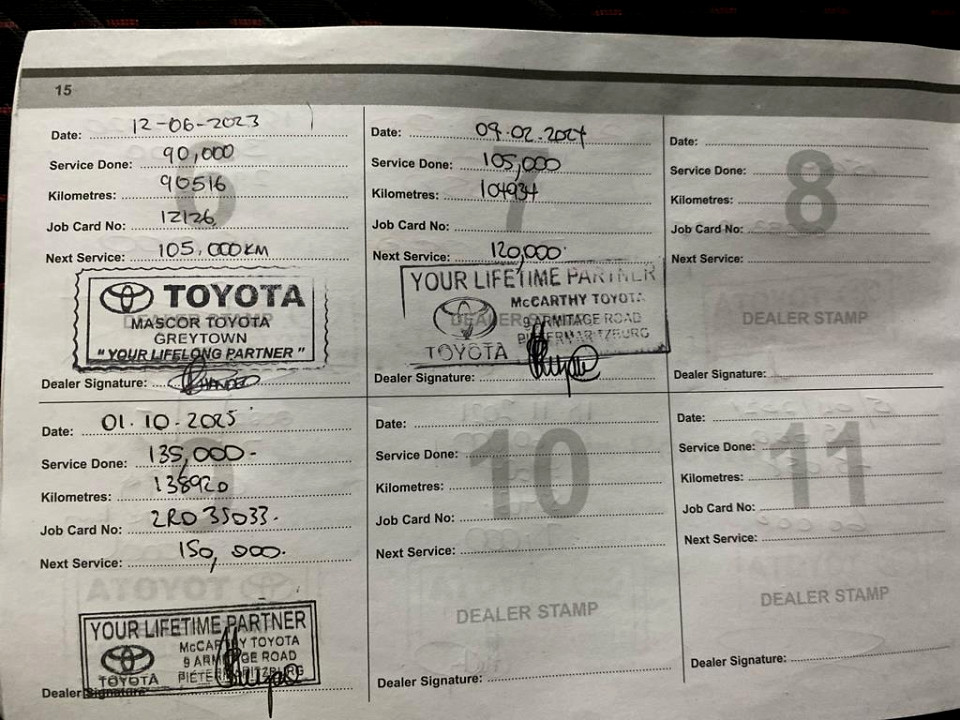 15
Date: 12-06-2023
Service Done: 90,000
Kilometres: 90516
Job Card No: 12126
Next Service: 105,000KM
6
TOYOTA
DEALER STAMP
MASCOR TOYOTA
GREYTOWN
"YOUR LIFELONG PARTNER"
Dealer Signature:
Date: 09.02.2024
Service Done: 105,000
Kilometres: 104934
Job Card No:
Next Service: 120,000
7
YOUR LIFETIME PARTNER
McCARTHY TOYOTA
DEALER
9 ARMITAGE ROAD
PIETERMARITZBURG
TOYOTA
Dealer Signature:
Date:
Service Done:
Kilometres:
Job Card No:
Next Service:
8
DEALER STAMP
Dealer Signature:
Date: 01.10.2025
Service Done: 135,000-
Kilometres: 138920
Job Card No: 2RO35033.
Next Service: 150,000.
YOUR LIFETIME PARTNER
McCARTHY TOYOTA
9 ARMITAGE ROAD
TOYOTA PIETERMARITZBURG
Dealer Signature
Date:
Service Done:
Kilometres:
Job Card No:
Next Service:
10
DEALER STAMP
Dealer Signature:
Date:
Service Done:
Kilometres:
Job Card No:
Next Service:
11
DEALER STAMP
Dealer Signature: